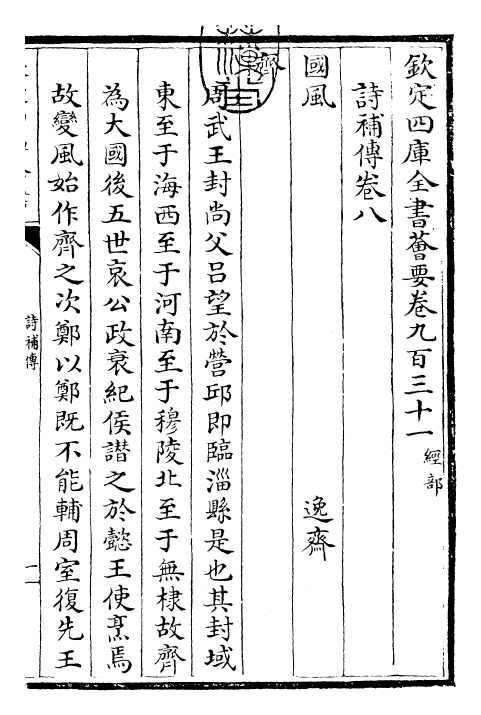 欽定四庫全書薈要卷九百三十一 經部
詩補傳卷八
逸齋
國風
齊
周武王封尚父呂望於營邱即臨淄縣是也其封域
東至于海西至于河南至于穆陵北至于無棣故齊
為大國後五世哀公政衰紀侯譖之於懿王使烹焉
故變風始作齊之次鄭以鄭既不能輔周室復先王
詩補傳
一